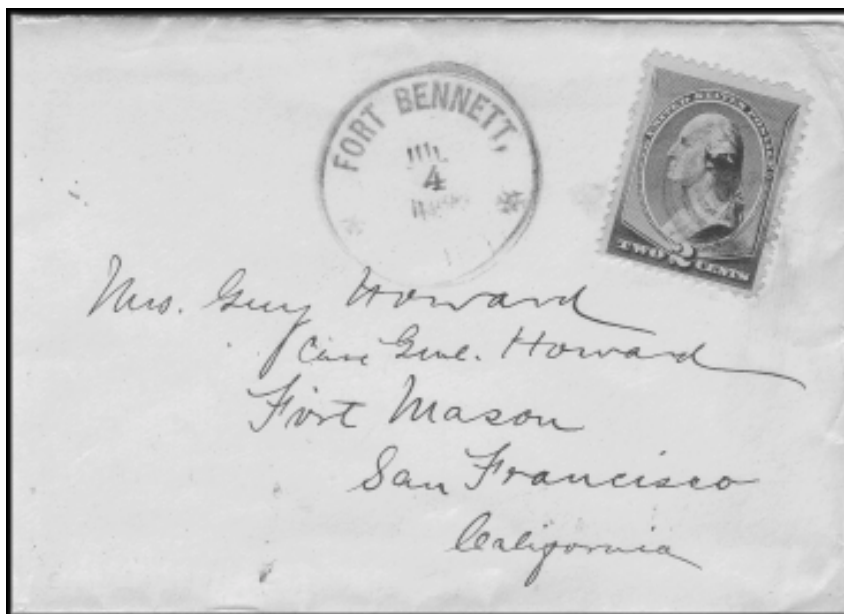 FORT BENNETT,
JUL
4
UNITED STATES POSTAGE
TWO 2 CENTS
Mrs. Guy Howard
Care Genl. Howard
Fort Mason
San Francisco
California